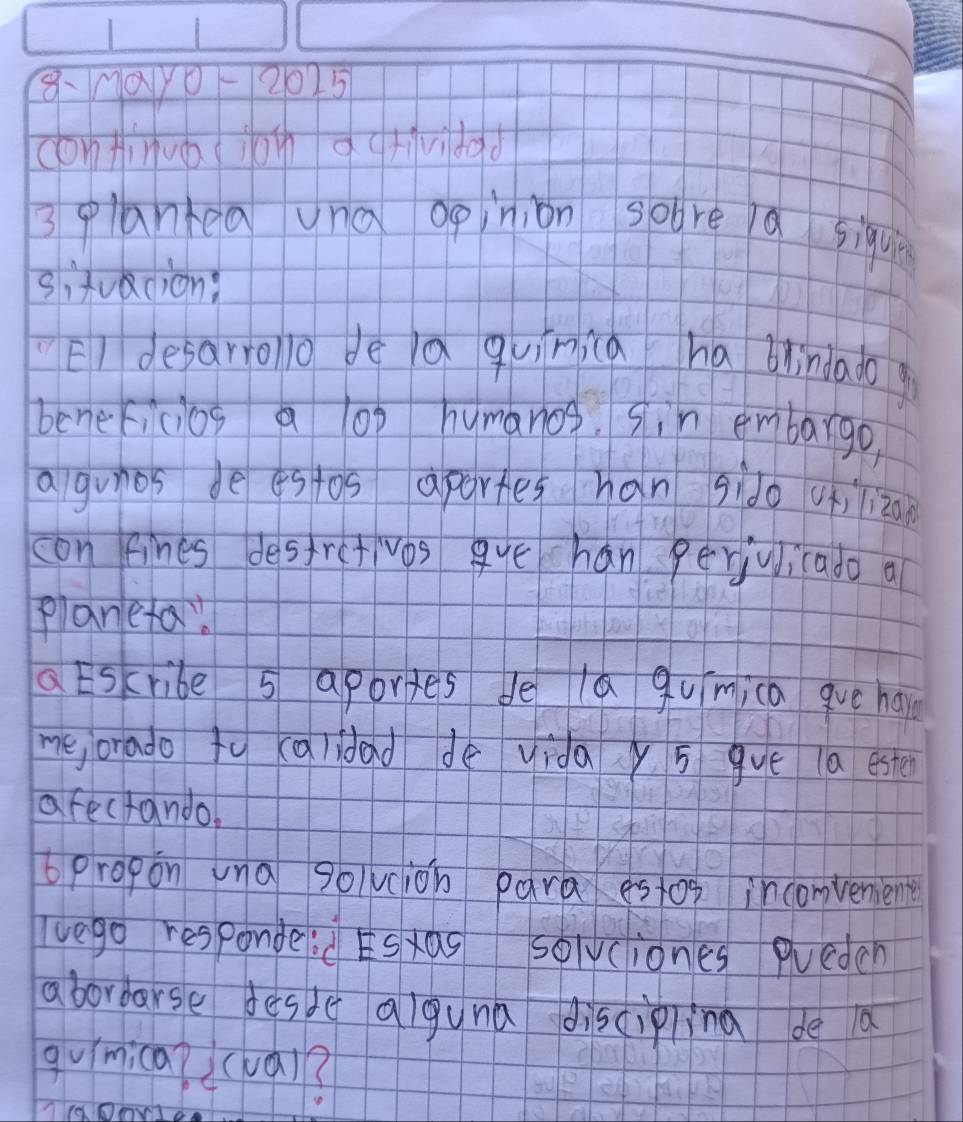 8- Mayo - 2025
continuación actividad
3 plantea una opinion sobre la
situación:
"El desarrollo de la química ha brindado
beneficios a los humanos. sin embargo,
algunos de estos aportes han sido utilizado
con fines destrctivos que han perjudicado al
planeta".
a Escribe 5 aportes de la química que haya
mejorado tu calidad de vida y 5 que la esten
afectando.
b Propón una solución para estos incomveniente
luego responde: ¿Estas soluciones pueden
abordarse desde alguna disciplina de la
química? ¿cual?